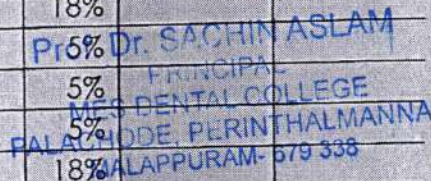 18%
5%
Prof. Dr. SACHIN ASLAM
5%
PRINCIPAL
MES DENTAL COLLEGE
5%
PALACHODE, PERINTHALMANNA
18%
MALAPPURAM- 679 338